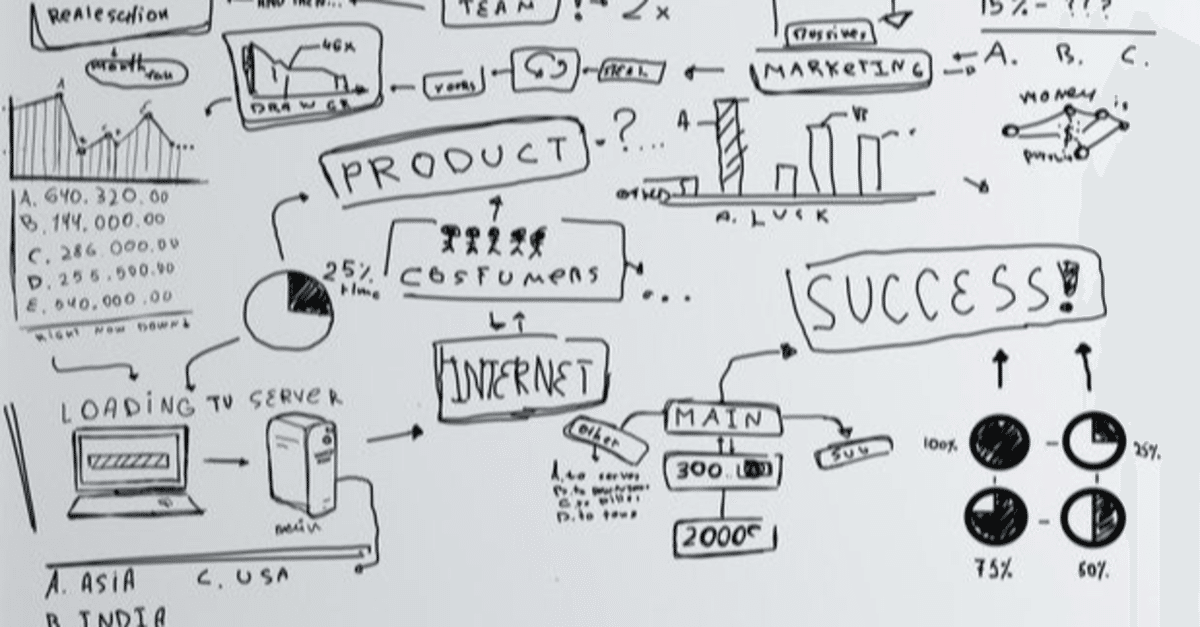 REALESCHION
AND THEN...
TEAM
! → 2x
15% - ???
A. B. C.
MARKETING
46x
DRAW GR
PRODUCT - ?...
A
A. LUCK
MONEY
A. 640.320.00
B. 144.000.00
C. 286.000.00
D. 255.500.00
E. 040.000.00
RIGHT NOW DOWN
25%
time
COSTUMERS
...
SUCCESS!
INTERNET
LOADING TO SERVER
MAIN
Other
SUB
300.
2000
A. to server
100%
25%
75%
50%
A. ASIA
C. USA
B. INDIA